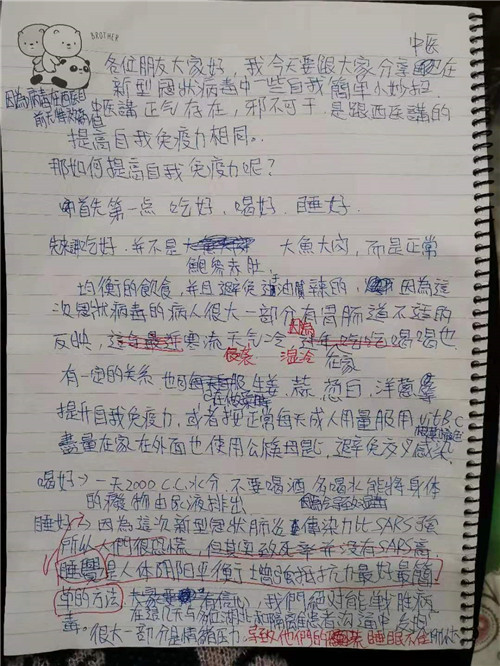 BROTHER
中医
各位朋友大家好，我今天要跟大家分享在
新型冠狀病毒中一些自我簡單小妙招
因為病毒在西医目
前无特效藥
中医講正气存在，邪不可干 是跟西医講的
提高自我免疫力相同。
那如何提高自我免疫力呢？
首先第一点 吃好，喝好，睡好
先來講吃好，並不是 大魚大肉，而是正常
鮑參赤肚，
均衡的飲食，並且避免過油膩辣的，因為這
次冠狀病毒的病人很大一部分有胃腸道不適的
反映，這年最近寒流天气冷 喝喝也
濕冷 在家
有一定的关系 也可 服生姜、蒜、葱白，洋葱
提升自我免疫力，或者按正常每天成人用量服用 vit B.C
盡量在家在外面也使用公筷母匙，避免交叉感染
喝好→一天2000 C.C.水分，不要喝酒 多喝水能將身体
的穢物由尿液排出
睡好→因為這次新型冠狀肺炎傳染力比SARS強
所以人們很恐慌，但其實致死率并没有SARS高，
睡覺是人体阴阳平衡，增強抵抗力最好最簡
单的方法，大家 有信心，我們絕对能戰胜病
毒。在這几天与 湖北 患者沟通中
很大一部分是情緒压力，導致他們的 睡眠不佳